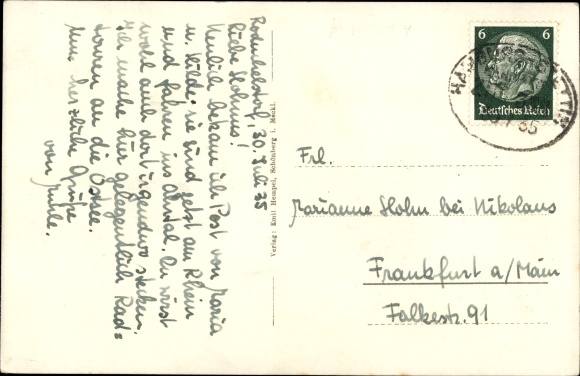 30. Juli 35
liebe Hohns!
Neulich bekam ich Post von Maria
u. Hilde; sie sind jetzt am Rhein
und fahren ins Ahrtal. Du wirst
wohl auch dort irgendwo stecken.
Ich mache hier gelegentlich Rad=
touren an die Ostsee.
Nun herzliche Grüße
von
Verlag: Emil Hempel, Schönberg i. Meckl.
6 6
Deutsches Reich
35
Frl.
Marianne Hohn bei Nikolaus
Frankfurt a/Main
Falkestr. 91